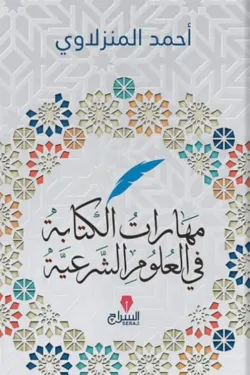 أحمد المنزلاوي
مهارات الكتابة
في العلوم الشرعية
السراج
SERAJ